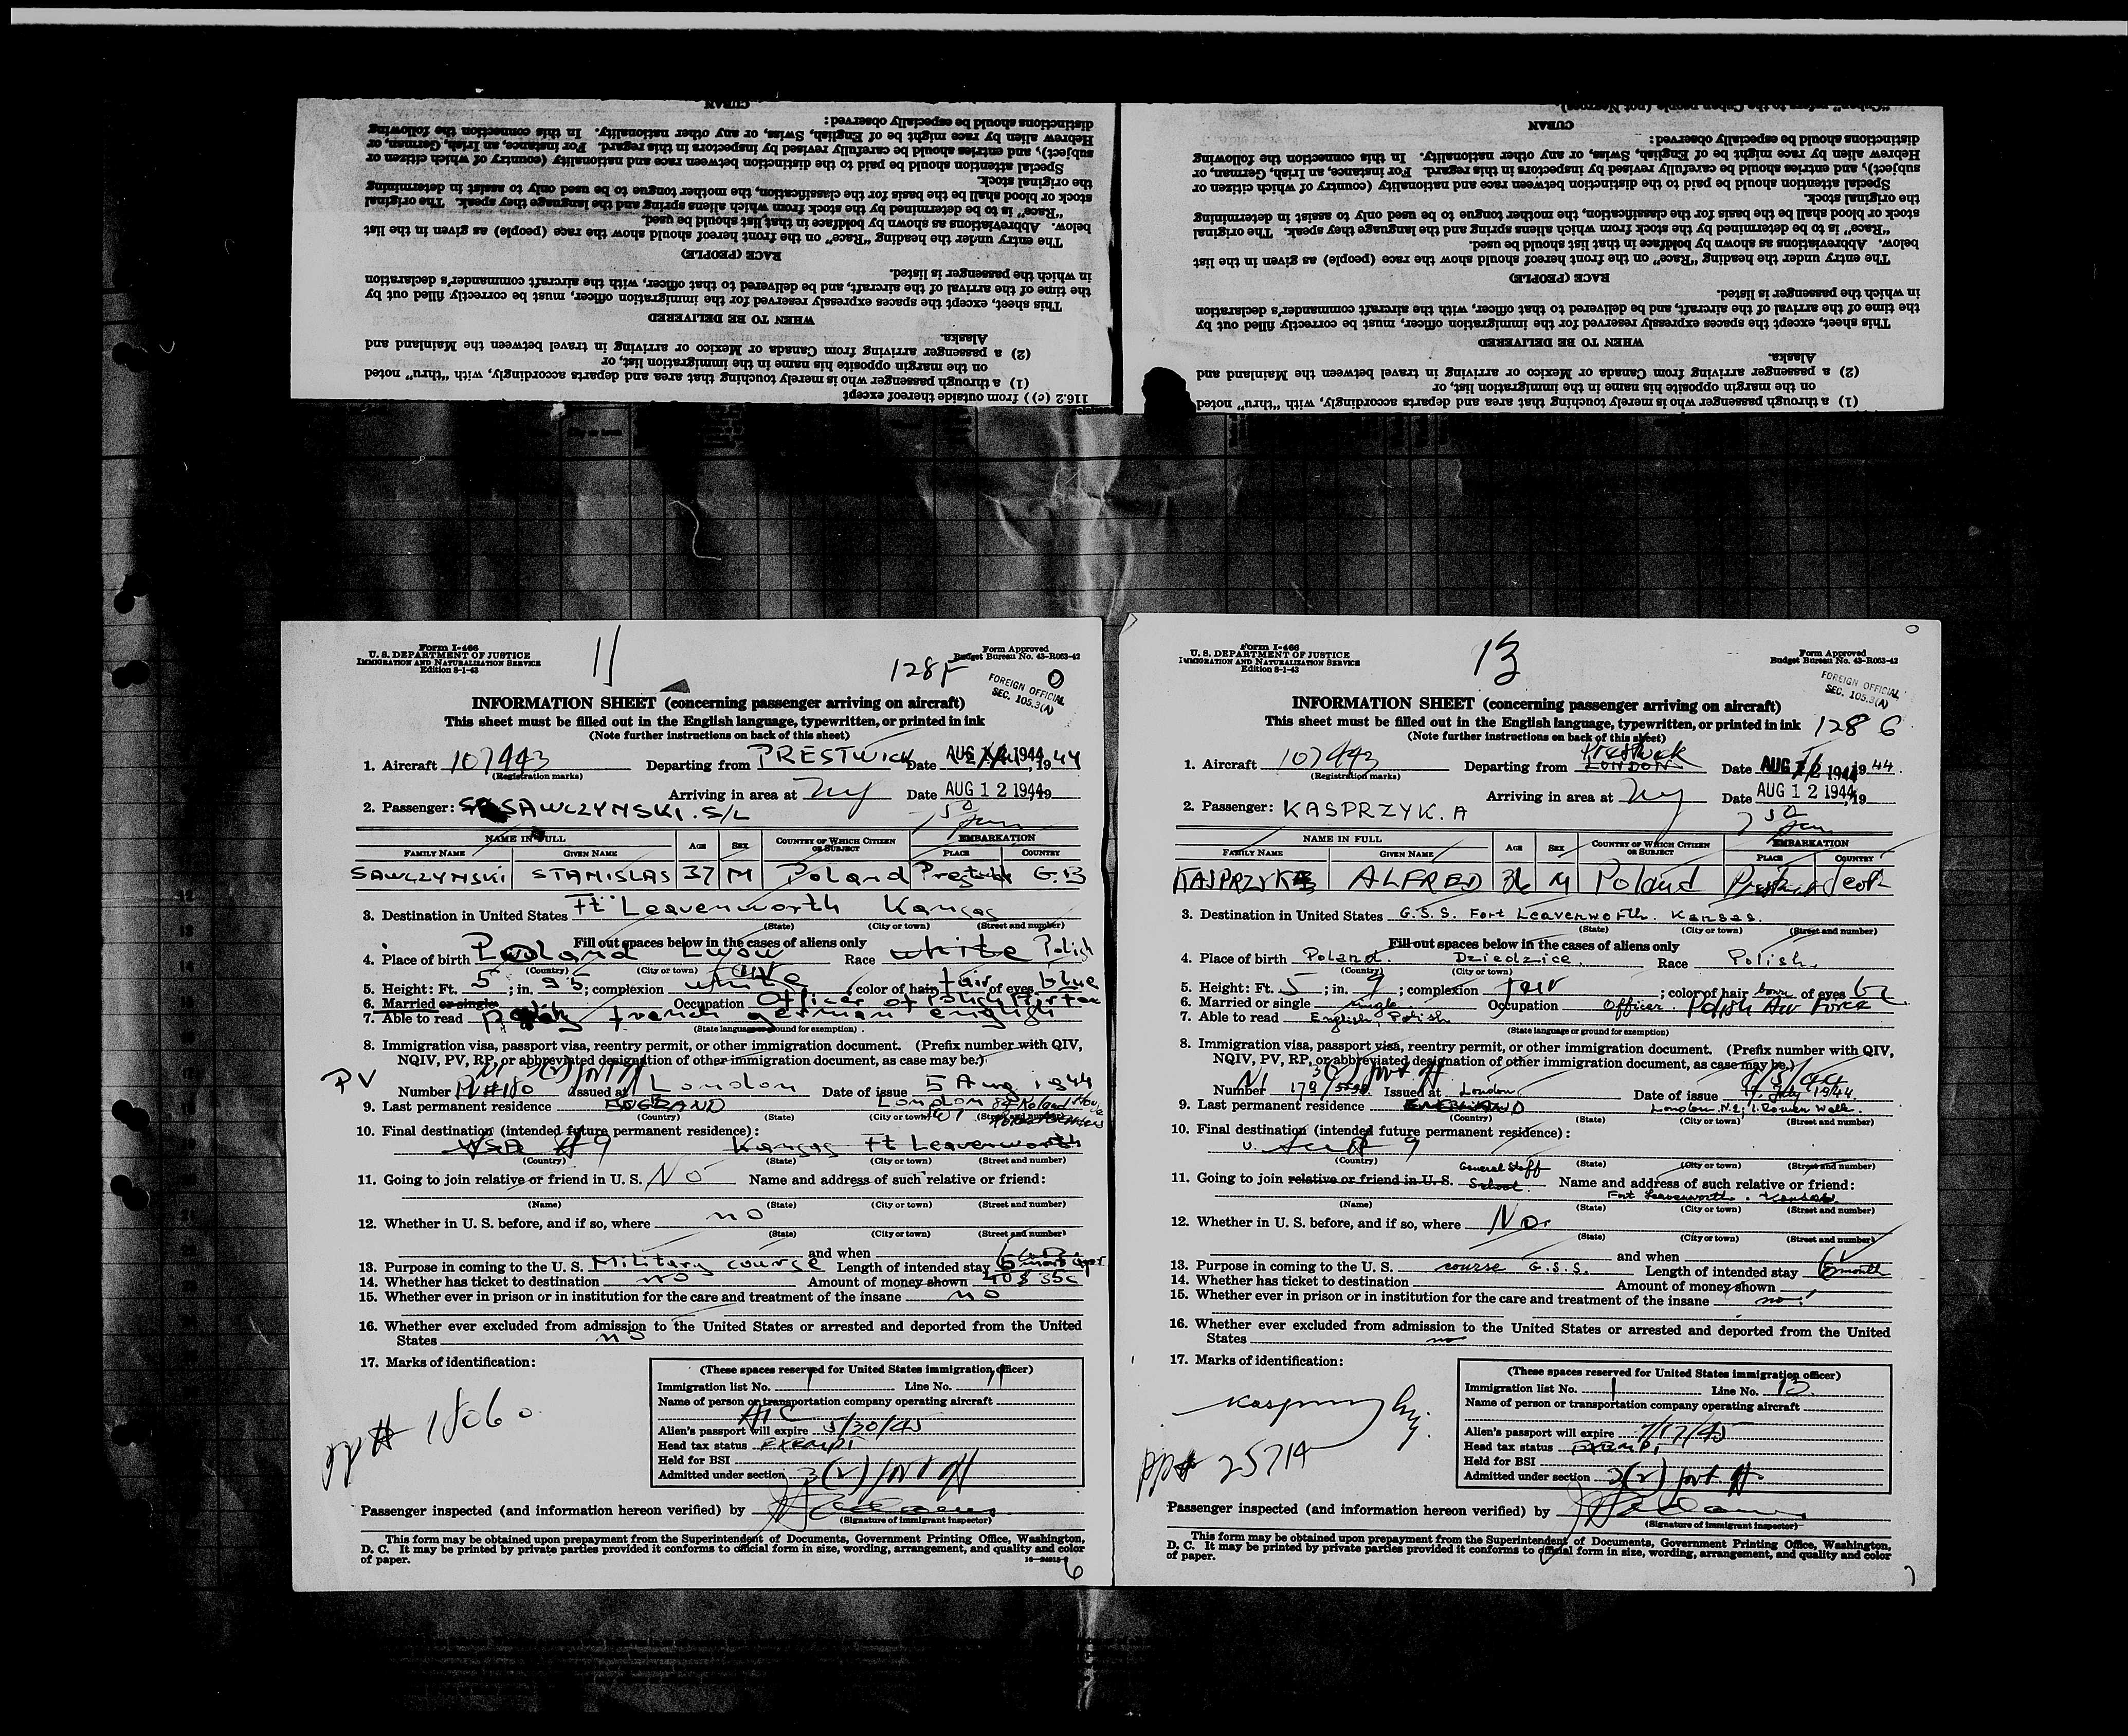 CUBAN
distinctions should be especially observed:
Hebrew alien by race might be of English, Swiss, or any other nationality. In this connection the following
subject), and entries should be carefully revised by inspectors in this regard. For instance, an Irish, German, or
Special attention should be paid to the distinction between race and nationality (country of which citizen or
the original stock.
stock or blood shall be the basis for the classification, the mother tongue to be used only to assist in determining
"Race" is to be determined by the stock from which aliens spring and the language they speak. The original
below. Abbreviations as shown by boldface in that list should be used.
The entry under the heading "Race" on the front hereof should show the race (people) as given in the list
RACE (PEOPLE)
in which the passenger is listed.
the time of the arrival of the aircraft, and be delivered to that officer, with the aircraft commander's declaration
This sheet, except the spaces expressly reserved for the immigration officer, must be correctly filled out by
WHEN TO BE DELIVERED
Alaska.
(2) a passenger arriving from Canada or Mexico or arriving in travel between the Mainland and
on the margin opposite his name in the immigration list, or
(1) a through passenger who is merely touching that area and departs accordingly, with "thru" noted
116.2 (c)) from outside thereof except
"Cuban" refers to the Cuban people (not Negroes)
CUBAN
distinctions should be especially observed:
Hebrew alien by race might be of English, Swiss, or any other nationality. In this connection the following
subject), and entries should be carefully revised by inspectors in this regard. For instance, an Irish, German, or
Special attention should be paid to the distinction between race and nationality (country of which citizen or
the original stock.
stock or blood shall be the basis for the classification, the mother tongue to be used only to assist in determining
"Race" is to be determined by the stock from which aliens spring and the language they speak. The original
below. Abbreviations as shown by boldface in that list should be used.
The entry under the heading "Race" on the front hereof should show the race (people) as given in the list
RACE (PEOPLE)
in which the passenger is listed.
the time of the arrival of the aircraft, and be delivered to that officer, with the aircraft commander's declaration
This sheet, except the spaces expressly reserved for the immigration officer, must be correctly filled out by
WHEN TO BE DELIVERED
Alaska.
(2) a passenger arriving from Canada or Mexico or arriving in travel between the Mainland and
on the margin opposite his name in the immigration list, or
(1) a through passenger who is merely touching that area and departs accordingly, with "thru" noted
Form I-466
U. S. DEPARTMENT OF JUSTICE
IMMIGRATION AND NATURALIZATION SERVICE
Edition 8-1-43
11
128F
Form Approved
Budget Bureau No. 43-R063-42
FOREIGN OFFICIAL
SEC. 105.3(A)
INFORMATION SHEET (concerning passenger arriving on aircraft)
This sheet must be filled out in the English language, typewritten, or printed in ink
(Note further instructions on back of this sheet)
1. Aircraft 107443 Departing from PRESTWICK Date AUG 1944, 1944
(Registration marks)
Arriving in area at NY Date AUG 12 1944, 19
2. Passenger: SAWCZYNSKI. S/L
NAME IN FULL AGE SEX COUNTRY OF WHICH CITIZEN OR SUBJECT EMBARKATION
FAMILY NAME GIVEN NAME PLACE COUNTRY
SAWCZYNSKI STANISLAS 37 M Poland Prestwick G.B
3. Destination in United States Ft Leavenworth Kansas
(State) (City or town) (Street and number)
Fill out spaces below in the cases of aliens only
4. Place of birth Poland Lwow Race white Polish
(Country) (City or town)
5. Height: Ft. 5; in. 9 5; complexion white; color of hair fair of eyes blue
6. Married or single Occupation Officer of Polish Air force
7. Able to read french german english
(State language or ground for exemption)
8. Immigration visa, passport visa, reentry permit, or other immigration document. (Prefix number with QIV,
NQIV, PV, RP, or abbreviated designation of other immigration document, as case may be.)
PV Number Issued at London Date of issue 5 Aug 1944
9. Last permanent residence ENGLAND London
(Country) (State) (City or town) (Street and number)
10. Final destination (intended future permanent residence):
USA Kansas Ft Leavenworth
(Country) (State) (City or town) (Street and number)
11. Going to join relative or friend in U. S. No Name and address of such relative or friend:
(Name) (State) (City or town) (Street and number)
12. Whether in U. S. before, and if so, where no
(State) (City or town) (Street and number)
and when
13. Purpose in coming to the U. S. Military course Length of intended stay 6
14. Whether has ticket to destination no Amount of money shown 40$ 35c
15. Whether ever in prison or in institution for the care and treatment of the insane no
16. Whether ever excluded from admission to the United States or arrested and deported from the United
States no
17. Marks of identification:
pp# 18060
(These spaces reserved for United States immigration officer)
Immigration list No. 1 Line No. 11
Name of person or transportation company operating aircraft
ATC
Alien's passport will expire 5/30/45
Head tax status EXEMPT
Held for BSI
Admitted under section 3(2)
Passenger inspected (and information hereon verified) by
(Signature of immigrant inspector)
This form may be obtained upon prepayment from the Superintendent of Documents, Government Printing Office, Washington,
D. C. It may be printed by private parties provided it conforms to official form in size, wording, arrangement, and quality and color
of paper.
6
Form I-466
U. S. DEPARTMENT OF JUSTICE
IMMIGRATION AND NATURALIZATION SERVICE
Edition 8-1-43
13
Form Approved
Budget Bureau No. 43-R063-42
FOREIGN OFFICIAL
SEC. 105.3(A)
INFORMATION SHEET (concerning passenger arriving on aircraft)
This sheet must be filled out in the English language, typewritten, or printed in ink 128 G
(Note further instructions on back of this sheet)
Prestwick
1. Aircraft 107443 Departing from LONDON Date AUG 12 1944, 1944.
(Registration marks)
Arriving in area at NY Date AUG 12 1944, 19
2. Passenger: KASPRZYK. A
NAME IN FULL AGE SEX COUNTRY OF WHICH CITIZEN OR SUBJECT EMBARKATION
FAMILY NAME GIVEN NAME PLACE COUNTRY
KASPRZYK ALFRED 36 M Poland Prestwick Scot
3. Destination in United States G.S.S. Fort Leavenworth. Kansas.
(State) (City or town) (Street and number)
Fill out spaces below in the cases of aliens only
4. Place of birth Poland. Dziedzice. Race Polish.
(Country) (City or town)
5. Height: Ft. 5; in. 9; complexion fair; color of hair of eyes bl
6. Married or single single. Occupation Officer. Polish Air Force
7. Able to read English, Polish
(State language or ground for exemption)
8. Immigration visa, passport visa, reentry permit, or other immigration document. (Prefix number with QIV,
NQIV, PV, RP, or abbreviated designation of other immigration document, as case may be.)
Number Issued at London. Date of issue July 1944.
9. Last permanent residence ENGLAND London N.2,
(Country) (State) (City or town) (Street and number)
10. Final destination (intended future permanent residence):
(Country) (State) (City or town) (Street and number)
11. Going to join relative or friend in U. S. General Staff School. Name and address of such relative or friend:
Fort Leavenworth. Kansas.
(Name) (State) (City or town) (Street and number)
12. Whether in U. S. before, and if so, where No.
(State) (City or town) (Street and number)
and when
13. Purpose in coming to the U. S. course G.S.S. Length of intended stay 6 month
14. Whether has ticket to destination Amount of money shown
15. Whether ever in prison or in institution for the care and treatment of the insane no!
16. Whether ever excluded from admission to the United States or arrested and deported from the United
States no
17. Marks of identification:
pp# 25714
(These spaces reserved for United States immigration officer)
Immigration list No. 1 Line No. 13
Name of person or transportation company operating aircraft
Alien's passport will expire 7/17/45
Head tax status EXEMPT
Held for BSI
Admitted under section 3(2)
Passenger inspected (and information hereon verified) by
(Signature of immigrant inspector)
This form may be obtained upon prepayment from the Superintendent of Documents, Government Printing Office, Washington,
D. C. It may be printed by private parties provided it conforms to official form in size, wording, arrangement, and quality and color
of paper.